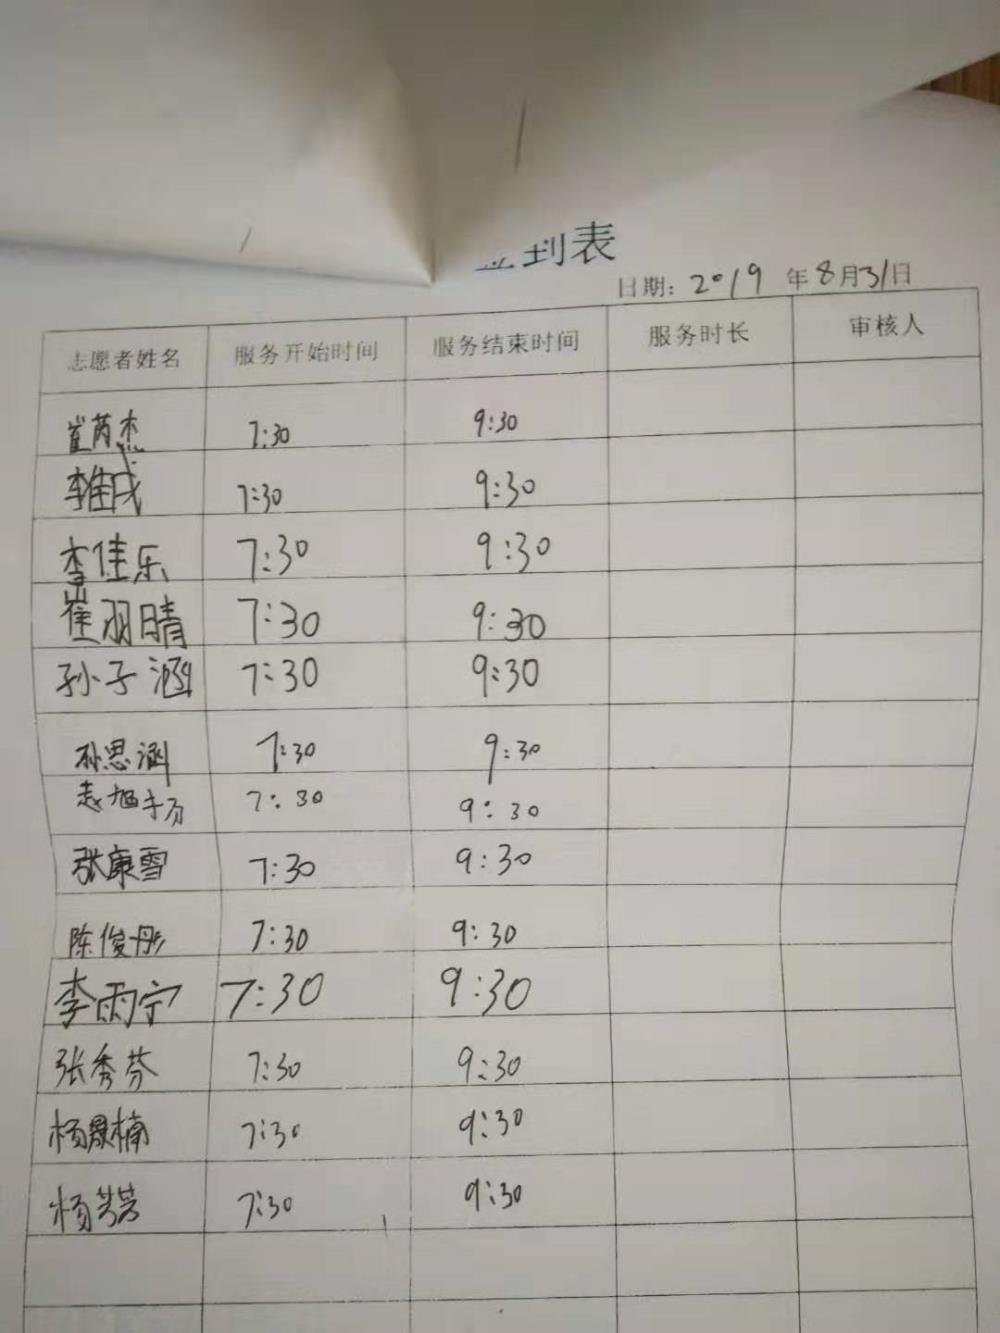 到表
日期: 2019 年 8月31日
志愿者姓名 服务开始时间 服务结束时间 服务时长 审核人
崔芮杰 7:30 9:30
李佳 7:30 9:30
李佳乐 7:30 9:30
崔羽晴 7:30 9:30
孙子涵 7:30 9:30
孙思涵 7:30 9:30
赵旭 7:30 9:30
张康雪 7:30 9:30
陈俊彤 7:30 9:30
李雨宁 7:30 9:30
张秀芬 7:30 9:30
杨晟楠 7:30 9:30
杨芳芳 7:30 9:30